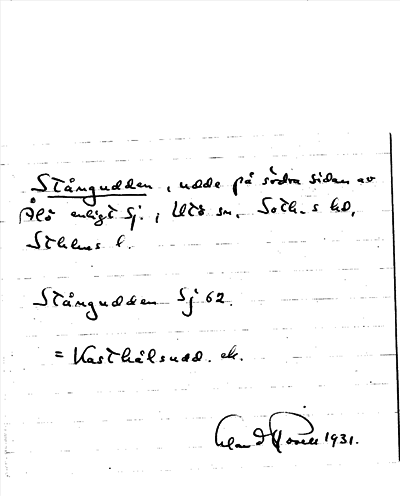 Stångudden, udde på södra sidan av
Ålö enligt Sj., Utö sn. Soth.s hd,
Sthlms l.
Stångudden Sj 62.
= Kasthålsudd. ek.
1931.